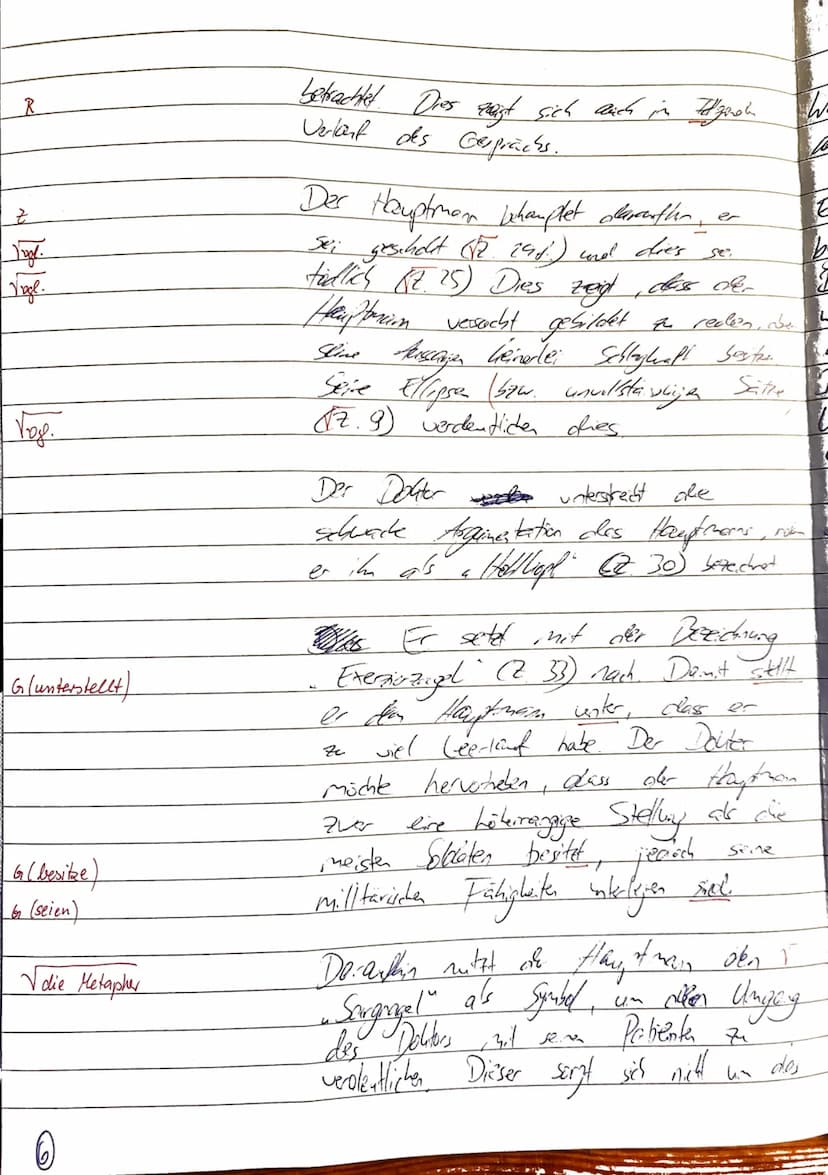 R
betrachtet. Dies zeigt sich auch in
Verlauf des Gesprächs.
Z
Der Hauptmann behauptet daraufhin, er
√vgl.
sei (√Z. 29f.) und dies sei
√vgl.
tödlich (√Z. 25) Dies zeigt, dass der
Hauptmann versucht gebildet zu reden, aber
seine Aussagen keinerlei besitzen.
Seine Ellipsen (bzw. unvollständigen Sätze
√vgl.
(√Z. 9) verdeutlichen dies.
Der Doktor unterstreicht die
schwache Argumentation des Hauptmanns, indem
er ihn als „Hohlkopf“ (Z. 30) bezeichnet
Er setzt mit der Bezeichnung
G (unterstellt)
„Exerzierzagel“ (Z. 33) nach Damit stellt
er dem Hauptmann unter, dass er
zu viel Leerlauf habe. Der Doktor
möchte hervorheben, dass der Hauptmann
zwar eine höherrangige Stellung als die
G (besitze)
meisten Soldaten besitzt, jedoch seine
G (seien)
militärischen Fähigkeiten unterlegen sind.
√ die Metapher
Daraufhin nutzt der Hauptmann den √
„Sargnagel“ als Symbol, um den Umgang
des Doktors mit seinen Patienten zu
verdeutlichen. Dieser sorgt sich nicht um das
6